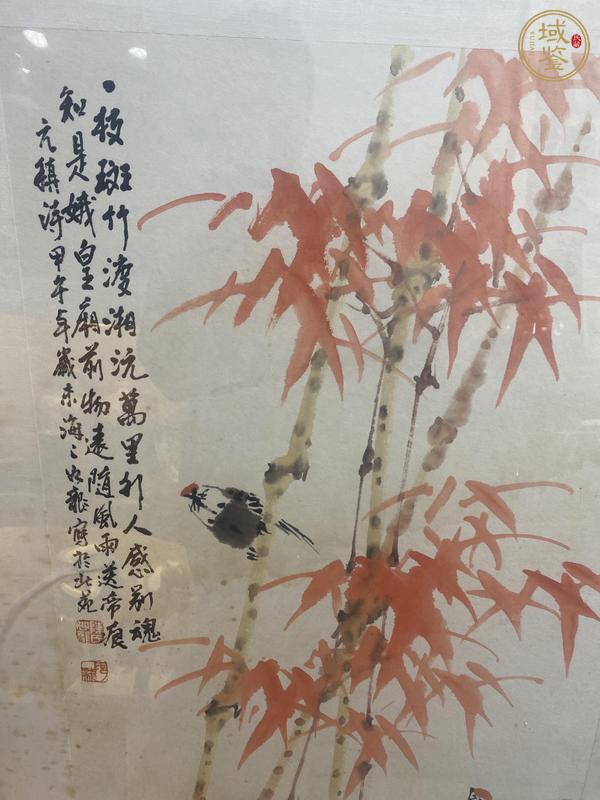 一枝斑竹渡湘沅萬里行人感别魂
知是娥皇廟前物遠隨風雨送啼痕
元稹詩甲午年歲末海
寫於北苑
域鉴
YUJIAN